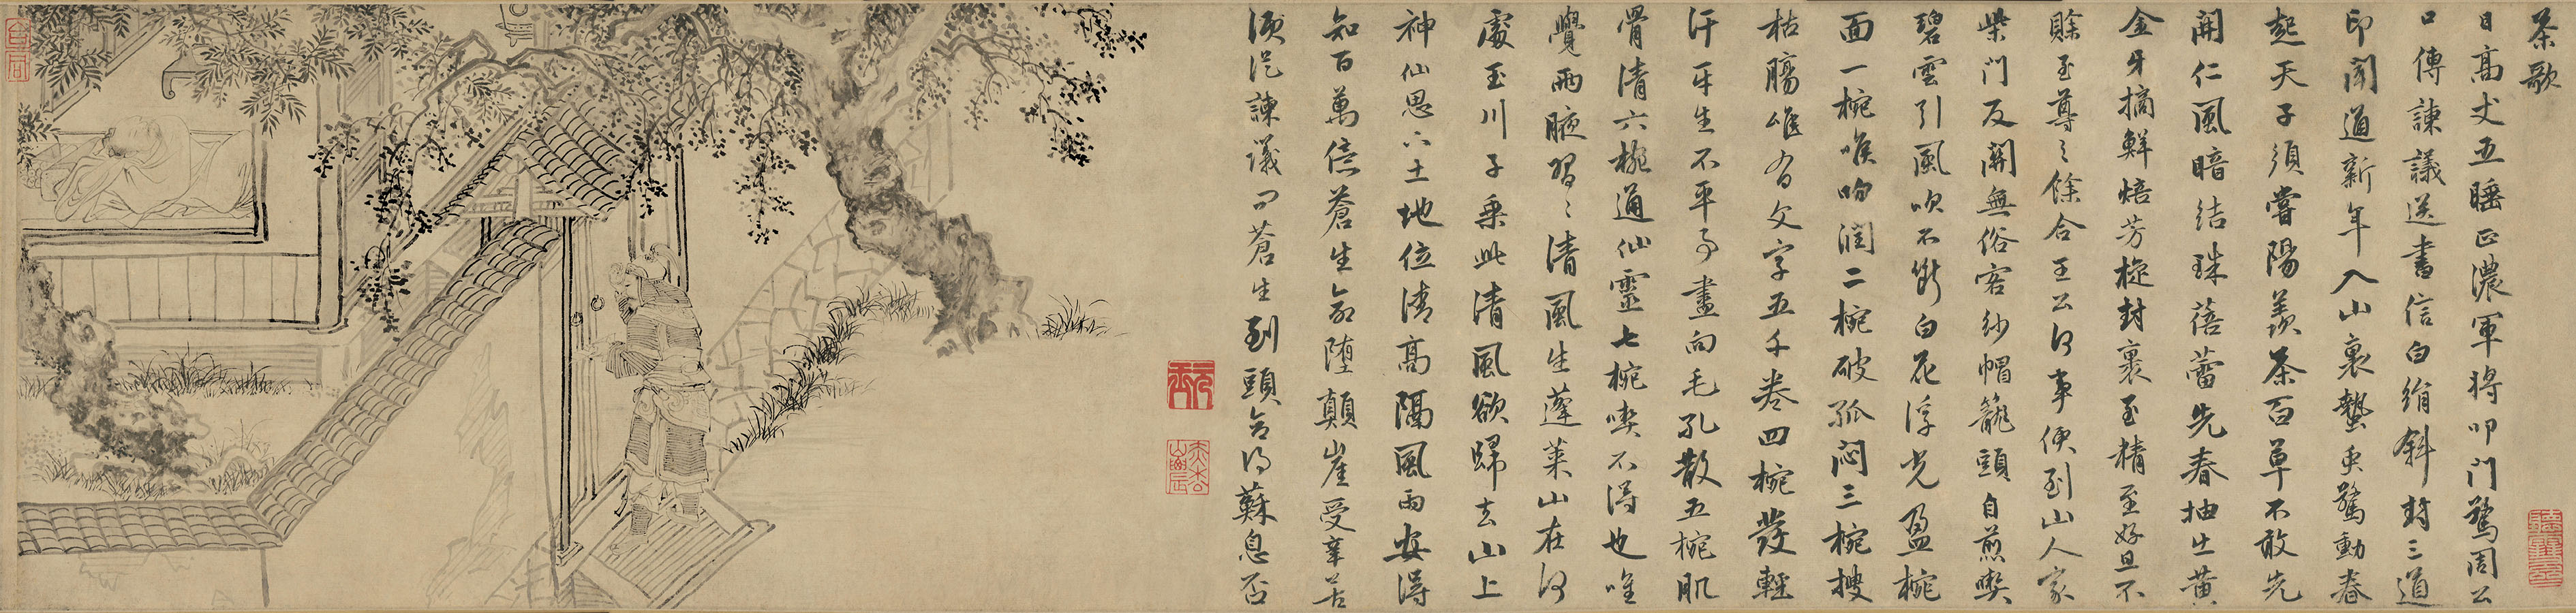 茶歌
日高丈五睡正濃軍將叩門驚周公
口傳諫議送書信白絹斜封三道
印聞道新年入山裏蟄虫驚動春
起天子須嘗陽羨茶百草不敢先
開仁風暗結珠蓓蕾先春抽出黃
金牙摘鮮焙芳旋封裹至精至好且不
賖至尊〻餘合王公何事便到山人家
柴門反關無俗客紗帽籠頭自煎喫
碧雲引風吹不斷白花浮光盈椀
面一椀喉吻潤二椀破孤悶三椀搜
枯腸惟有文字五千卷四椀發輕
汗平生不平事盡向毛孔散五椀肌
骨清六椀通仙靈七椀喫不得也唯
覺兩腋習〻清風生蓬萊山在何
處玉川子乘此清風欲歸去山上
神仙土地位清高隔風雨安得
知百萬億蒼生命墮顛崖受辛苦
須從諫議問蒼生到頭合得蘇息否